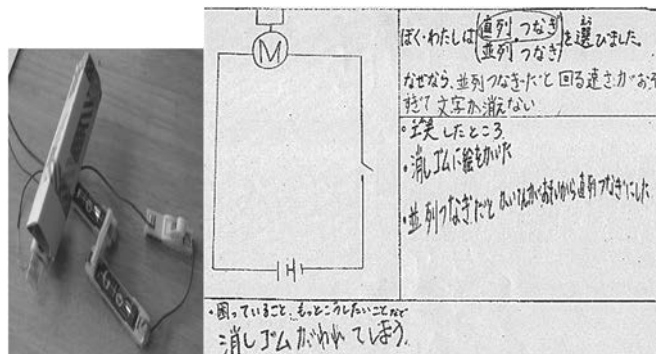 M
ぼく・わたしは(直列つなぎ
並列つなぎ)を選びました。
なぜなら、並列つなぎだと回る速さがおそ
すぎて文字が消えない
・工夫したところ
・消しゴムに絵をかいた
・並列つなぎだとかいてんがおそいから直列つなぎにした
・困っていること、もっとこうしたいことなど
消しゴムがわれてしまう。